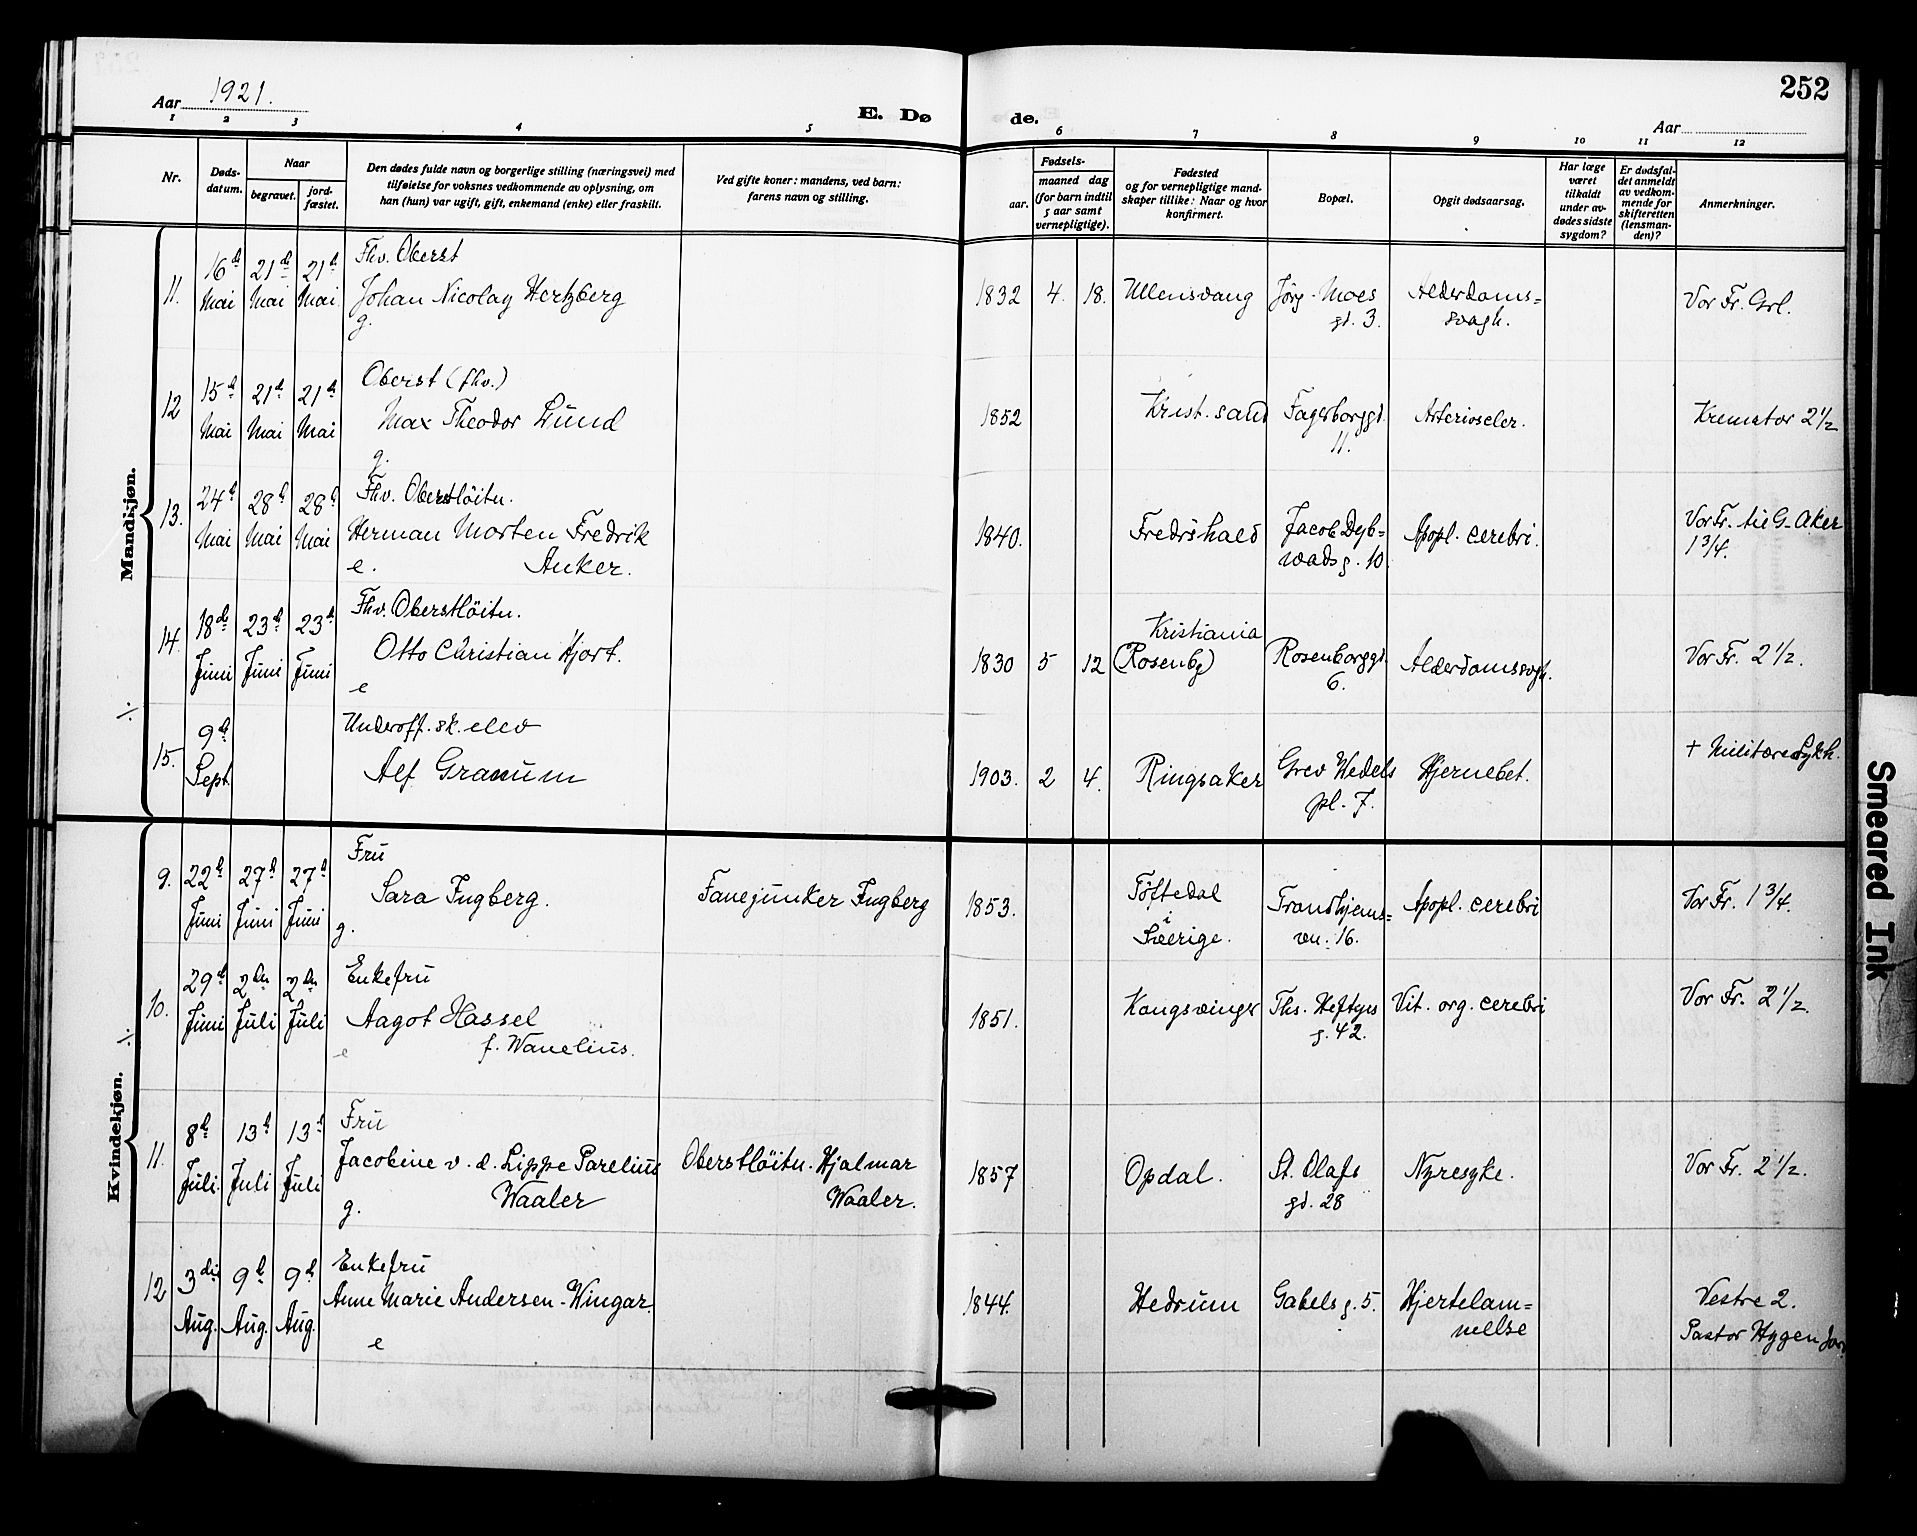 252
Aar 1921.
E. Dø de.
Aar
1 2 3 4 5 6 7 8 9 10 11 12
Nr.
Døds-
datum.
Naar
begravet.
jord-
fæstet.
Den dødes fulde navn og borgerlige stilling (næringsvei) med
tilføielse for voksnes vedkommende av oplysning, om
han (hun) var ugift, gift, enkemand (enke) eller fraskilt.
Ved gifte koner: mandens, ved barn:
farens navn og stilling.
Fødsels-
aar.
maaned dag
(for barn indtil
5 aar samt
vernepligtige).
Fødested
og for vernepligtige mand-
skaper tillike: Naar og hvor
konfirmert.
Bopæl.
Opgit dødsaarsag.
Har læge
været
tilkaldt
under av-
dødes sidste
sygdom?
Er dødsfal-
det anmeldt
av vedkom-
mende for
skifteretten
(lensman-
den)?
Anmerkninger.
Mandkjøn.
11. 16d Mai 21d Mai 21d Mai
Fhv. Oberst
Johan Nicolay Hertzberg
g.
1832 4. 18. Ullensvang
Jørg. Moes
gd. 3.
Alderdoms=
svagh.
Vor Fr. Grl.
12 15d Mai 21d Mai 21d Mai
Oberst (fhv.)
Max Theodor Lund
g.
1852 Krist.sand
Fagerborggd.
11.
Arterioscler.
Kremator 2 1/2
13. 24d Mai 28d Mai 28d Mai
Fhv. Oberstløitn.
Herman Morten Fredrik
e. Anker.
1840. Fredrshald
Jacob Dyb=
wads g. 10.
Apopl. cerebri.
Vor Fr. til G. Aker
1 3/4.
14. 18de Juni 23d Juni 23d Juni
Fhv. Oberstløitn.
Otto Christian Hjort.
e
1830 5 12
Kristiania
(Rosenbg)
Rosenborggd.
6.
Alderdomssvgh.
Vor Fr. 2 1/2.
÷
15. 9d Sept
Underoff.sk. elev
Alf Granum
1903. 2 4. Ringsaker
Grev Wedels
pl. 7.
Hjernebet.
+ Militære Sykh.
Kvindekjøn.
9. 22d Juni 27d Juni 27d Juni
Fru
Sara Ingberg.
g.
Fanejunker Ingberg
1853.
Töftedal
i
Sverige.
Trondhjems=
vn. 16.
Apopl. cerebri
Vor Fr. 1 3/4.
10. 29d Juni 2den Juli 2den Juli
Enkefru
Aagot Hassel
e f. Wanelius.
1851. Kongsvinger
Ths. Heftyes
g. 42.
Vit. org. cerebri
Vor Fr. 2 1/2.
÷
11. 8d Juli. 13d Juli 13d Juli
Fru
Jacobine v. d. Lippe Parelius
Waaler
g.
Oberstløitn. Hjalmar
Waaler.
1857 Opdal.
St. Olafs
gd. 28
Nyresyke.
Vor Fr. 2 1/2.
12 3die Aug. 9d Aug. 9d Aug.
Enkefru
Anne Marie Andersen-Wingar
e
1844. Hedrum Gabels g. 5.
Hjertelam=
melse
Vestre 2.
Pastor Hygen
Smeared Ink